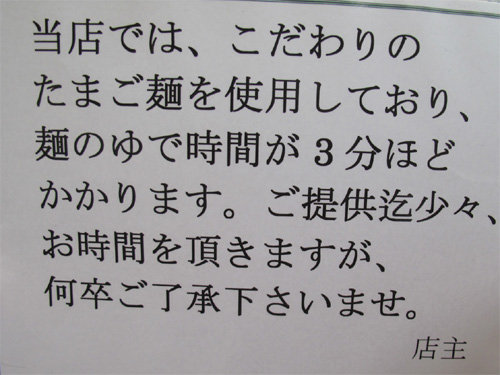 当店では、こだわりの
たまご麺を使用しており、
麺のゆで時間が3分ほど
かかります。ご提供迄少々、
お時間を頂きますが、
何卒ご了承下さいませ。
店主